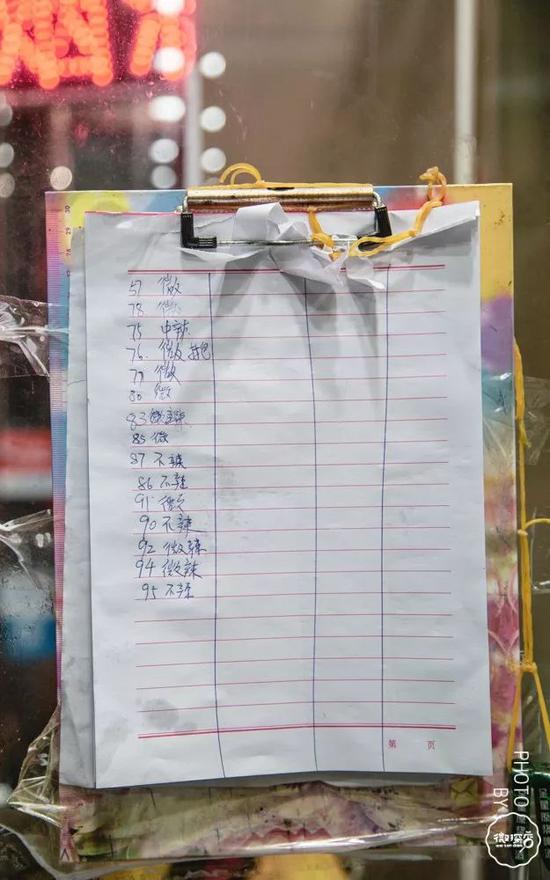 57 微
78 微
75 中辣
76. 微 打包
79 微
80 微
83 微辣
85 微
87 不辣
86 不辣
91 微
90 不辣
92 微辣
94 微辣
95 不辣
第 页
PHOTO
BY
微探香